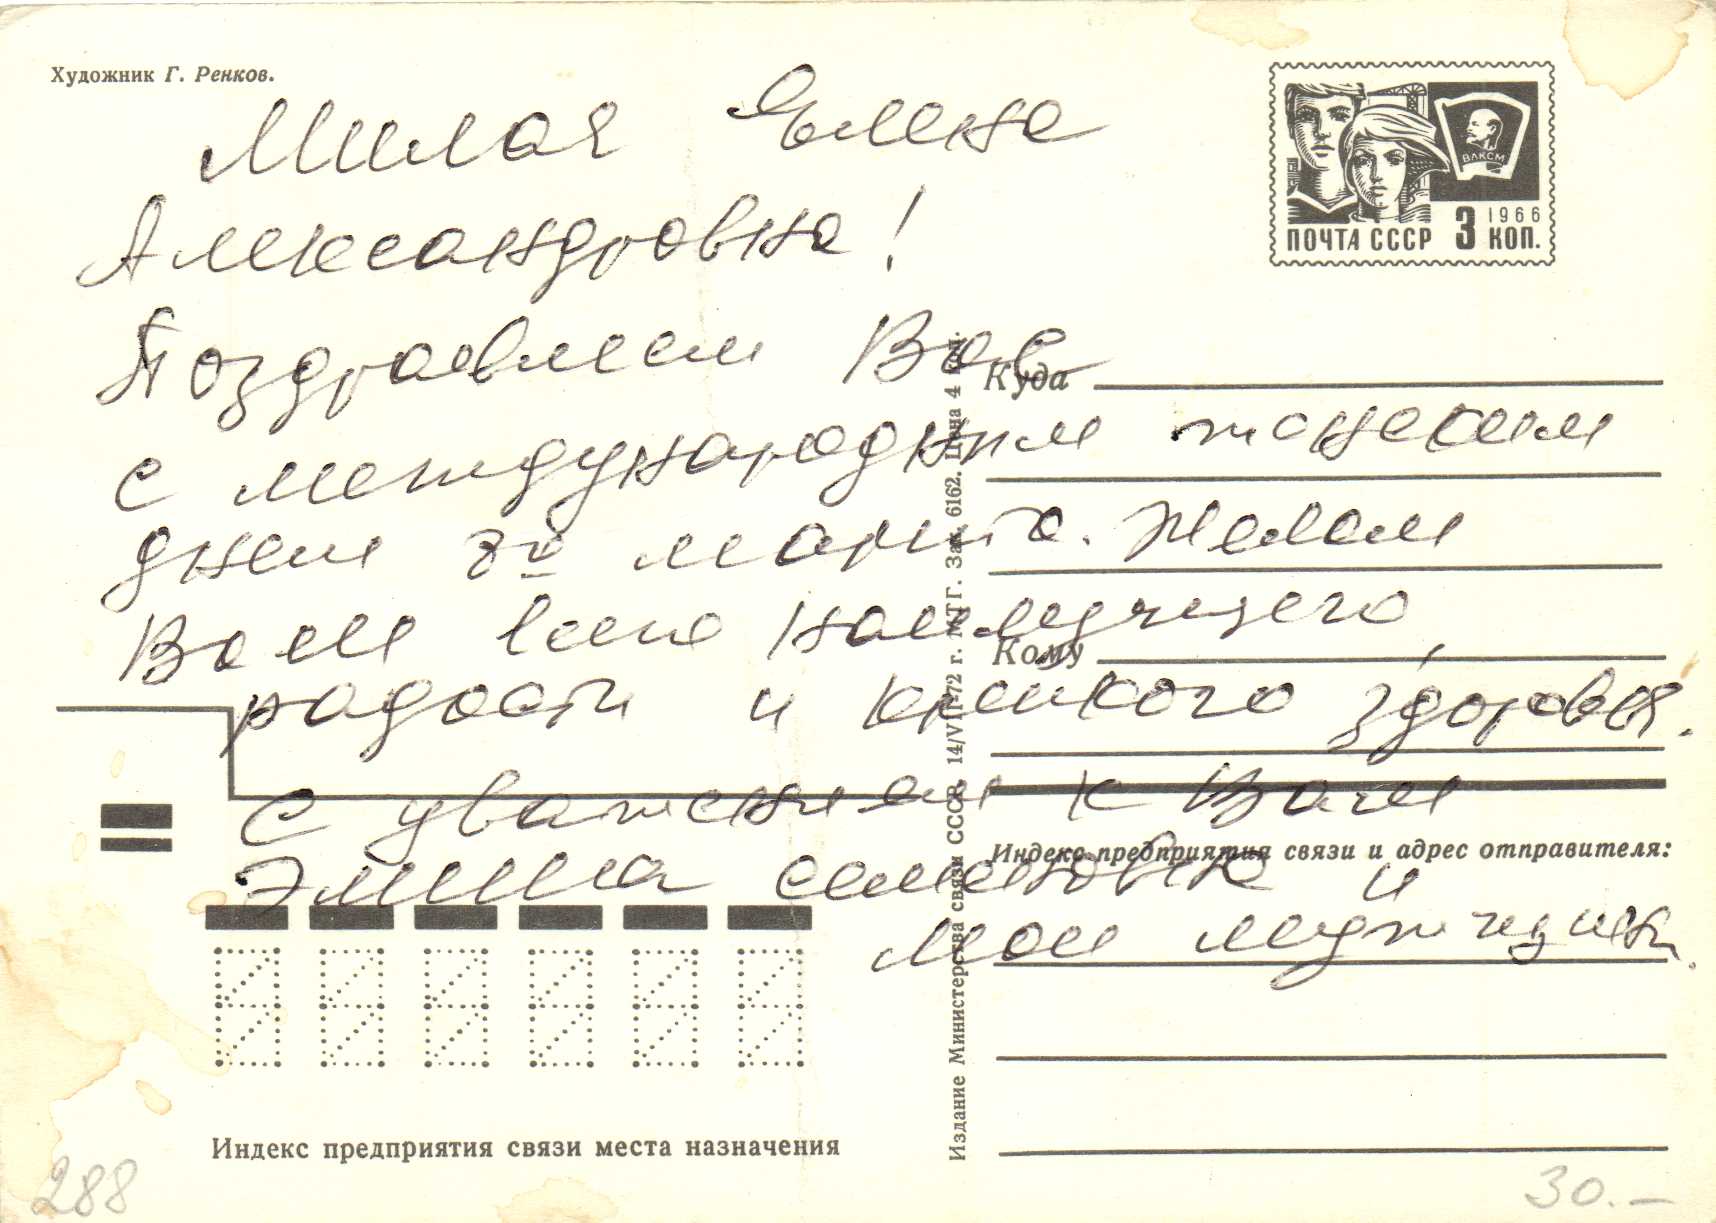 Художник Г. Ренков.
Милая
Александровна!
ПОЧТА СССР 3 КОП.
1966
ВЛКСМ
Поздравляем Вас
с международным женским
днем 8ое марта. Желаем
Вам всего наилучшего,
радости и крепкого здоровья.
С уважением к Вам
Семеновна и
мои мужчины.
Куда
Кому
Индекс предприятия связи и адрес отправителя:
Индекс предприятия связи места назначения
Издание Министерства связи СССР. 14/VII-72 г. МТГ. Зак. 6162. Цена 4 коп.
288
30.—